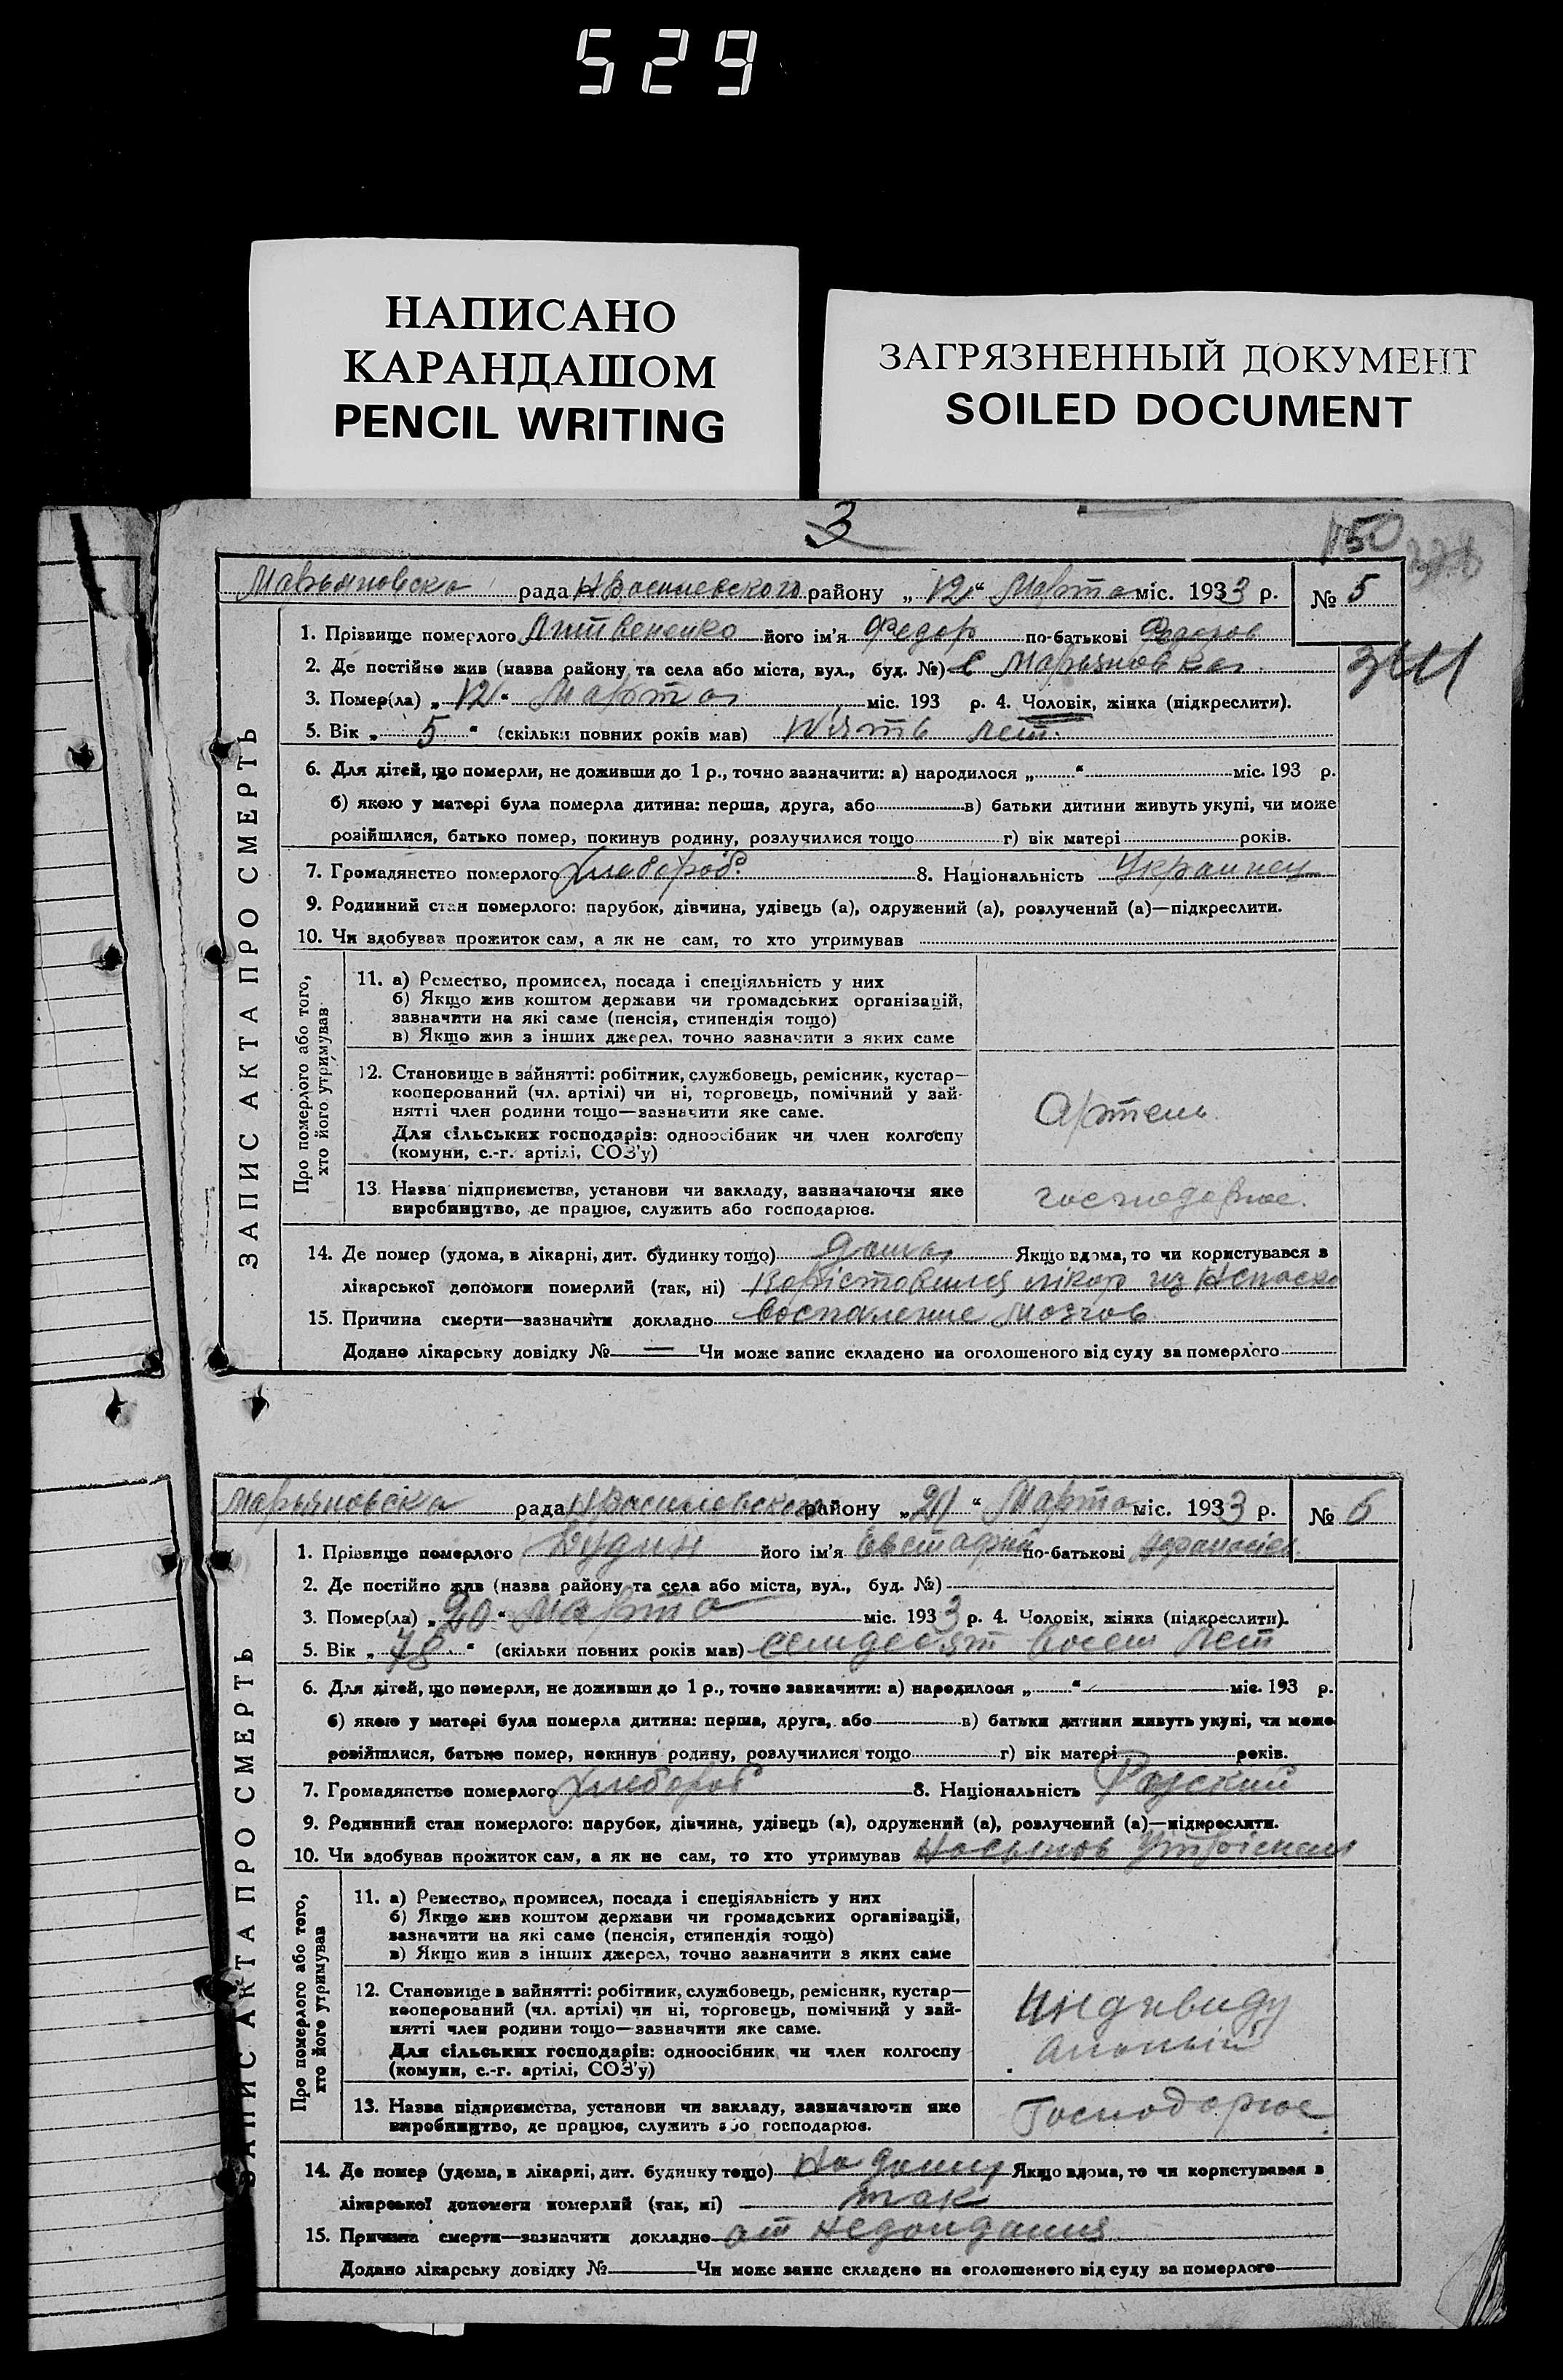 529
НАПИСАНО
КАРАНДАШОМ
PENCIL WRITING
ЗАГРЯЗНЕННЫЙ ДОКУМЕНТ
SOILED DOCUMENT
3
150
328
Марьяновска рада НВасилевского району „12“ Марта міс. 1933 р. № 5
1. Прізвище померлого Литвененко його ім'я Федор по-батькові
2. Де постійно жив (назва району та села або міста, вул., буд. №) с Марьяновка
3. Помер(ла) „12“ Марта міс. 193 р. 4. Чоловік, жінка (підкреслити).
5. Вік „5“ (скільки повних років мав) пять лет.
6. Для дітей, що померли, не доживши до 1 р., точно зазначити: а) народилося „ “ міс. 193 р.
б) якою у матері була померла дитина: перша, друга, або в) батьки дитини живуть укупі, чи може
розійшлися, батько помер, покинув родину, розлучилися тощо г) вік матері років.
7. Громадянство померлого Хлебороб. 8. Національність Украинец
9. Родинний стан померлого: парубок, дівчина, удівець (а), одружений (а), розлучений (а)—підкреслити.
10. Чи здобував прожиток сам, а як не сам, то хто утримував
ЗАПИС АКТА ПРО СМЕРТЬ
Про померлого або того,
хто його утримував
11. а) Ремество, промисел, посада і спеціяльність у них
б) Якщо жив коштом держави чи громадських організацій,
зазначити на які саме (пенсія, стипендія тощо)
в) Якщо жив з інших джерел, точно зазначити з яких саме
12. Становище в зайнятті: робітник, службовець, ремісник, кустар—
кооперований (чл. артілі) чи ні, торговець, помічний у зай-
нятті член родини тощо—зазначити яке саме.
Для сільських господарів: одноосібник чи член колгоспу
(комуни, с.-г. артілі, СОЗ'у)
Артель
13. Назва підприємства, установи чи закладу, зазначаючи яке
виробництво, де працює, служить або господарює.
господарює.
14. Де помер (удома, в лікарні, дит. будинку тощо) дома Якщо вдома, то чи користувався з
лікарської допомоги померлий (так, ні) из
15. Причина смерти—зазначити докладно воспаление мозгов
Додано лікарську довідку № — Чи може запис складено на оголошеного від суду за померлого
Марьяновска рада НВасилевского району „21“ Марта міс. 1933 р. № 6
1. Прізвище померлого Будин його ім'я Евстафий по-батькові
2. Де постійно жив (назва району та села або міста, вул., буд. №)
3. Помер(ла) „20“ Марта міс. 1933 р. 4. Чоловік, жінка (підкреслити).
5. Вік „78“ (скільки повних років мав) семдесят восем лет
6. Для дітей, що померли, не доживши до 1 р., точно зазначити: а) народилося „ “ міс. 193 р.
б) якою у матері була померла дитина: перша, друга, або в) батьки дитини живуть укупі, чи може
розійшлися, батько помер, покинув родину, розлучилися тощо г) вік матері років.
7. Громадянство померлого Хлебороб 8. Національність Руский
9. Родинний стан померлого: парубок, дівчина, удівець (а), одружений (а), розлучений (а)—підкреслити.
10. Чи здобував прожиток сам, а як не сам, то хто утримував
ЗАПИС АКТА ПРО СМЕРТЬ
Про померлого або того,
хто його утримував
11. а) Ремество, промисел, посада і спеціяльність у них
б) Якщо жив коштом держави чи громадських організацій,
зазначити на які саме (пенсія, стипендія тощо)
в) Якщо жив з інших джерел, точно зазначити з яких саме
12. Становище в зайнятті: робітник, службовець, ремісник, кустар—
кооперований (чл. артілі) чи ні, торговець, помічний у зай-
нятті член родини тощо—зазначити яке саме.
Для сільських господарів: одноосібник чи член колгоспу
(комуни, с.-г. артілі, СОЗ'у)
Индивиду
13. Назва підприємства, установи чи закладу, зазначаючи яке
виробництво, де працює, служить або господарює.
Господарює
14. Де помер (удома, в лікарні, дит. будинку тощо) На дому Якщо вдома, то чи користувався з
лікарської допомоги померлий (так, ні) так
15. Причина смерти—зазначити докладно от недоидания
Додано лікарську довідку № Чи може запис складено на оголошеного від суду за померлого